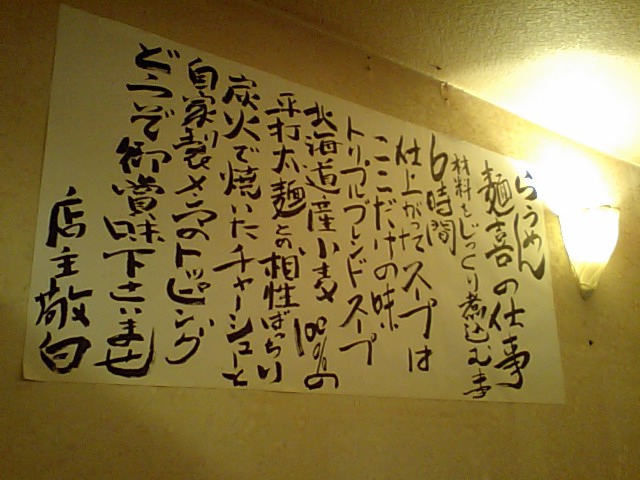 らうめん
麺喜の仕事
材料をじっくり煮込む事
6時間
仕上がったスープは
ここだけの味
トリプルブレンドスープ
北海道産小麦100%の
平打太麺との相性ばっちり
炭火で焼いたチャーシューと
自家製メンマのトッピング
どうぞ御賞味下さいませ
店主敬白